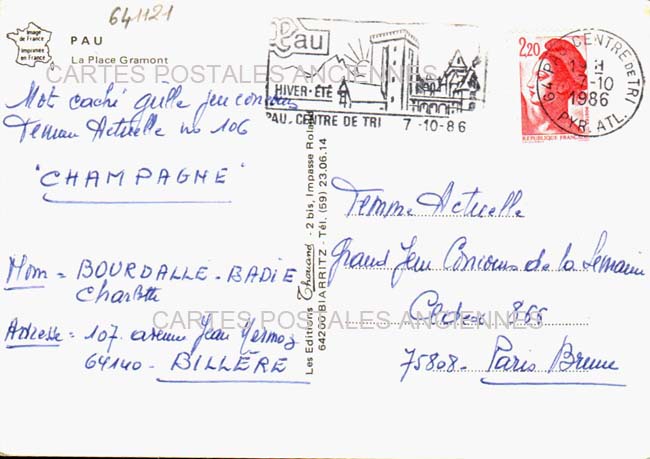 641121
Image
de France
Imprimée
en France
PAU
La Place Gramont
Pau
HIVER-ÉTÉ
PAU, CENTRE DE TRI 7-10-86
2,20
RÉPUBLIQUE FRANÇAISE
64 PAU CENTRE DE TRI
7-10
1986
PYR. ATL.
CARTES POSTALES ANCIENNES
Mot caché grille jeu concours
Femme Actuelle no 106
"CHAMPAGNE"
Nom = BOURDALLÉ-BADIE
Charlotte
Adresse = 107. avenue Jean Mermoz
64140 - BILLÈRE
Les Editions Thouand - 2 bis, Impasse Roland
64200 BIARRITZ - Tél. (59) 23.06.14
Femme Actuelle
Grand Jeu Concours de la Semaine
Cedex 866
75808 - Paris Brune
CARTES POSTALES ANCIENNES